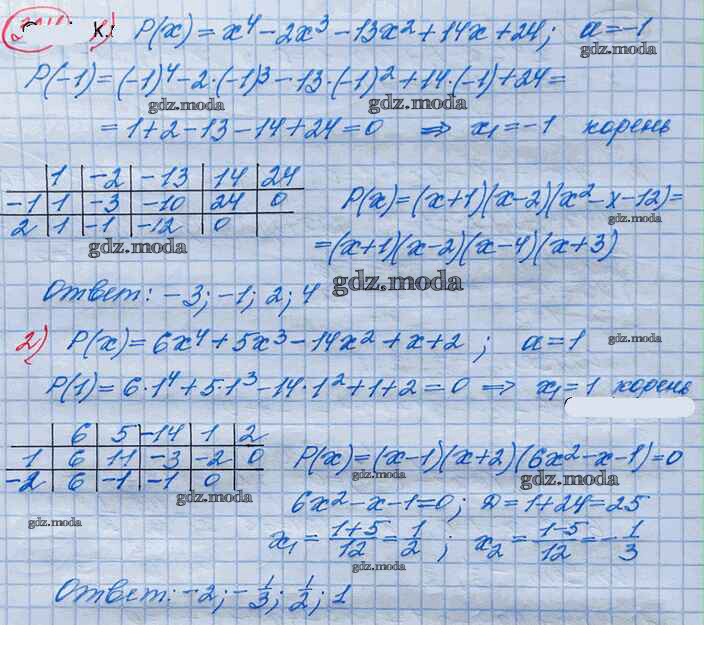 1) P(x) = x⁴ - 2x³ - 13x² + 14x + 24; a = -1
gdz.moda
P(-1) = (-1)⁴ - 2·(-1)³ - 13·(-1)² + 14·(-1) + 24 =
gdz.moda gdz.moda
= 1 + 2 - 13 - 14 + 24 = 0 ⇒ x₁ = -1 корень
| 1 | -2 | -13 | 14 | 24
-1 | 1 | -3 | -10 | 24 | 0
2 | 1 | -1 | -12 | 0 |
gdz.moda
P(x) = (x+1)(x-2)(x² - x - 12) =
gdz.moda
= (x+1)(x-2)(x-4)(x+3)
gdz.moda
Ответ: -3; -1; 2; 4
2) P(x) = 6x⁴ + 5x³ - 14x² + x + 2; a = 1
gdz.moda
P(1) = 6·1⁴ + 5·1³ - 14·1² + 1 + 2 = 0 ⇒ x₁ = 1 корень
| 6 | 5 | -14 | 1 | 2
1 | 6 | 11 | -3 | -2 | 0
-2 | 6 | -1 | -1 | 0 |
gdz.moda
gdz.moda
P(x) = (x-1)(x+2)(6x² - x - 1) = 0
gdz.moda
6x² - x - 1 = 0; D = 1 + 24 = 25
x₁ = (1+5)/12 = 1/2; x₂ = (1-5)/12 = -1/3
gdz.moda
Ответ: -2; -1/3; 1/2; 1
gdz.moda